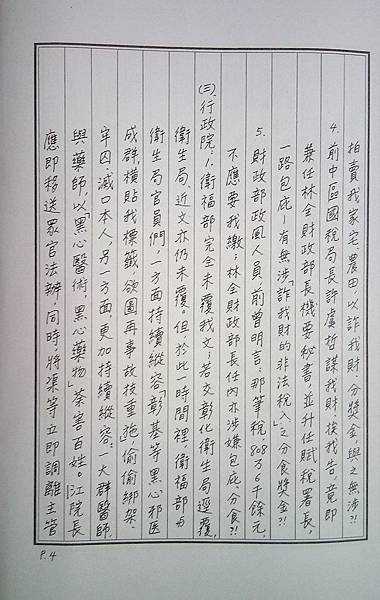 拍賣我家宅、農田以詐我財、分獎金,與之無涉?!
4. 前中區國稅局長許虞哲謀我財後我告,竟即
兼任林全財政部長機要秘書,並升任賦稅署長,
一路包庇!有無涉「詐我財的非法稅入」之分食獎金?!
5. 財政部政風人員前曾明言:那筆稅,808万6千餘元,
不應要我繳;林全財政部長任內亦涉嫌包庇、分食?!
(三)、行政院:1.衛福部完全未覆我文;若交彰化衛生局逕覆,
衛生局、近文亦仍未覆。但於此一時間裡,衛福部与
衛生局官員們,一方面持續縱容「彰基等黑心邪医
成群,橫貼我標籤,欲圖再事故技重施,偷偷綁架、
牢囚、滅口本人,另一方面更加持續縱容一大群醫師,
與藥師,以「黑心醫術,黑心藥物」荼害百姓。江院長
應即移送眾官法辦,同時將渠等立即調離主管
P.4